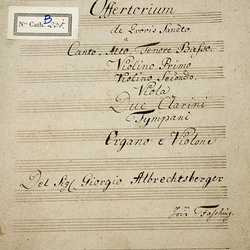 Offertorium
de Evovis Sancto
a
Canto, Alto Tenore Basso.
Violino Primo
Violino Secondo
Viola
Due Clarini
Tympani
Organo e Violone
Del Sig Giorgio Albrechtsberger
Fasching
Nro Cath. B